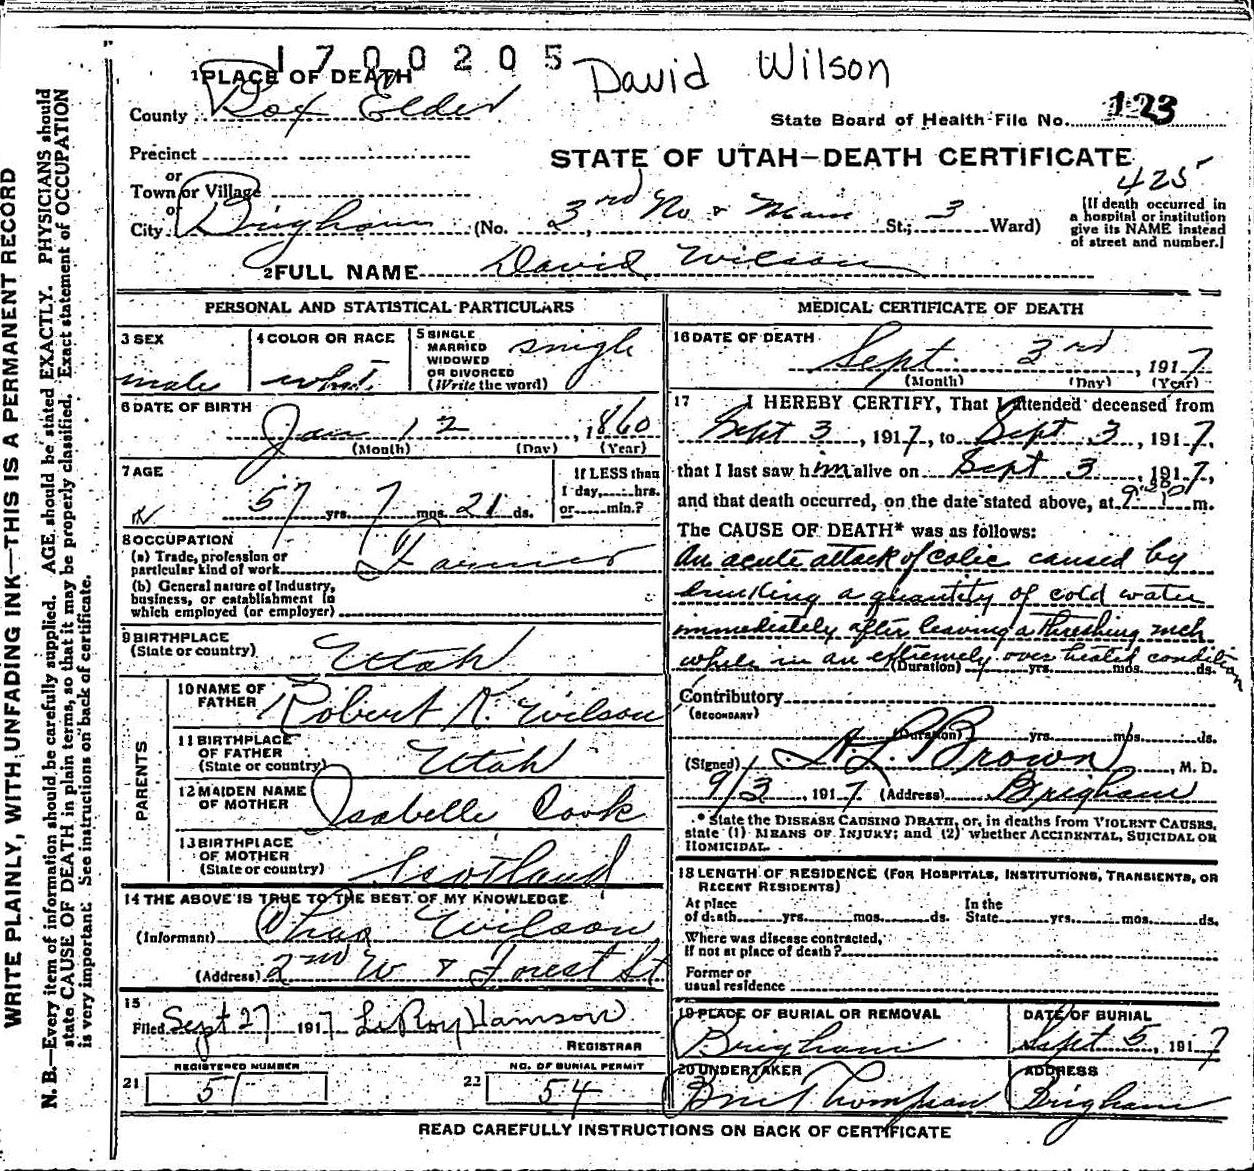 1700205
David Wilson
1 PLACE OF DEATH
County Box Elder
State Board of Health-File No. 123
Precinct
STATE OF UTAH—DEATH CERTIFICATE
or
Town or Village
425
or
City Brigham (No. 3rd No & Main St.; 3 Ward)
[If death occurred in
a hospital or institution
give its NAME instead
of street and number.]
2 FULL NAME David Wilson
PERSONAL AND STATISTICAL PARTICULARS
3 SEX
male
4 COLOR OR RACE
white
5 SINGLE
MARRIED
WIDOWED
OR DIVORCED
(Write the word)
single
6 DATE OF BIRTH
Jan 12, 1860
(Month) (Day) (Year)
7 AGE
57 yrs. 7 mos. 21 ds.
If LESS than
1 day, hrs.
or min.?
8 OCCUPATION
(a) Trade, profession or
particular kind of work Farmer
(b) General nature of Industry,
business, or establishment in
which employed (or employer)
9 BIRTHPLACE
(State or country) Utah
PARENTS
10 NAME OF
FATHER Robert R. Wilson
11 BIRTHPLACE
OF FATHER
(State or country) Utah
12 MAIDEN NAME
OF MOTHER Isabelle Cook
13 BIRTHPLACE
OF MOTHER
(State or country) Scotland
14 THE ABOVE IS TRUE TO THE BEST OF MY KNOWLEDGE
(Informant) Chas Wilson
(Address) 2nd W & Forest St
15
Filed Sept 27 1917 LeRoy
REGISTRAR
REGISTERED NUMBER
21 51
NO. OF BURIAL PERMIT
22 54
MEDICAL CERTIFICATE OF DEATH
16 DATE OF DEATH
Sept. 3rd, 1917
(Month) (Day) (Year)
17 I HEREBY CERTIFY, That I attended deceased from
Sept 3, 1917, to Sept 3, 1917,
that I last saw him alive on Sept 3, 1917,
and that death occurred, on the date stated above, at m.
The CAUSE OF DEATH* was as follows:
An acute attack of colic caused by
drinking a quantity of cold water
immediately after leaving a threshing mch
while in an extremely over heated condition
(Duration) yrs. mos. ds.
Contributory
(SECONDARY)
(Duration) yrs. mos. ds.
(Signed) Brown, M. D.
9/3, 1917 (Address) Brigham
* State the DISEASE CAUSING DEATH, or, in deaths from VIOLENT CAUSES,
state (1) MEANS OF INJURY; and (2) whether ACCIDENTAL, SUICIDAL OR
HOMICIDAL.
18 LENGTH OF RESIDENCE (FOR HOSPITALS, INSTITUTIONS, TRANSIENTS, OR
RECENT RESIDENTS)
At place
of death yrs. mos. ds.
In the
State yrs. mos. ds.
Where was disease contracted,
If not at place of death?
Former or
usual residence
19 PLACE OF BURIAL OR REMOVAL
Brigham
DATE OF BURIAL
Sept 5, 1917
20 UNDERTAKER
Thompson
ADDRESS
Brigham
READ CAREFULLY INSTRUCTIONS ON BACK OF CERTIFICATE
WRITE PLAINLY, WITH UNFADING INK—THIS IS A PERMANENT RECORD
N. B.—Every item of information should be carefully supplied. AGE should be stated EXACTLY. PHYSICIANS should
state CAUSE OF DEATH in plain terms, so that it may be properly classified. Exact statement of OCCUPATION
is very important. See instructions on back of certificate.